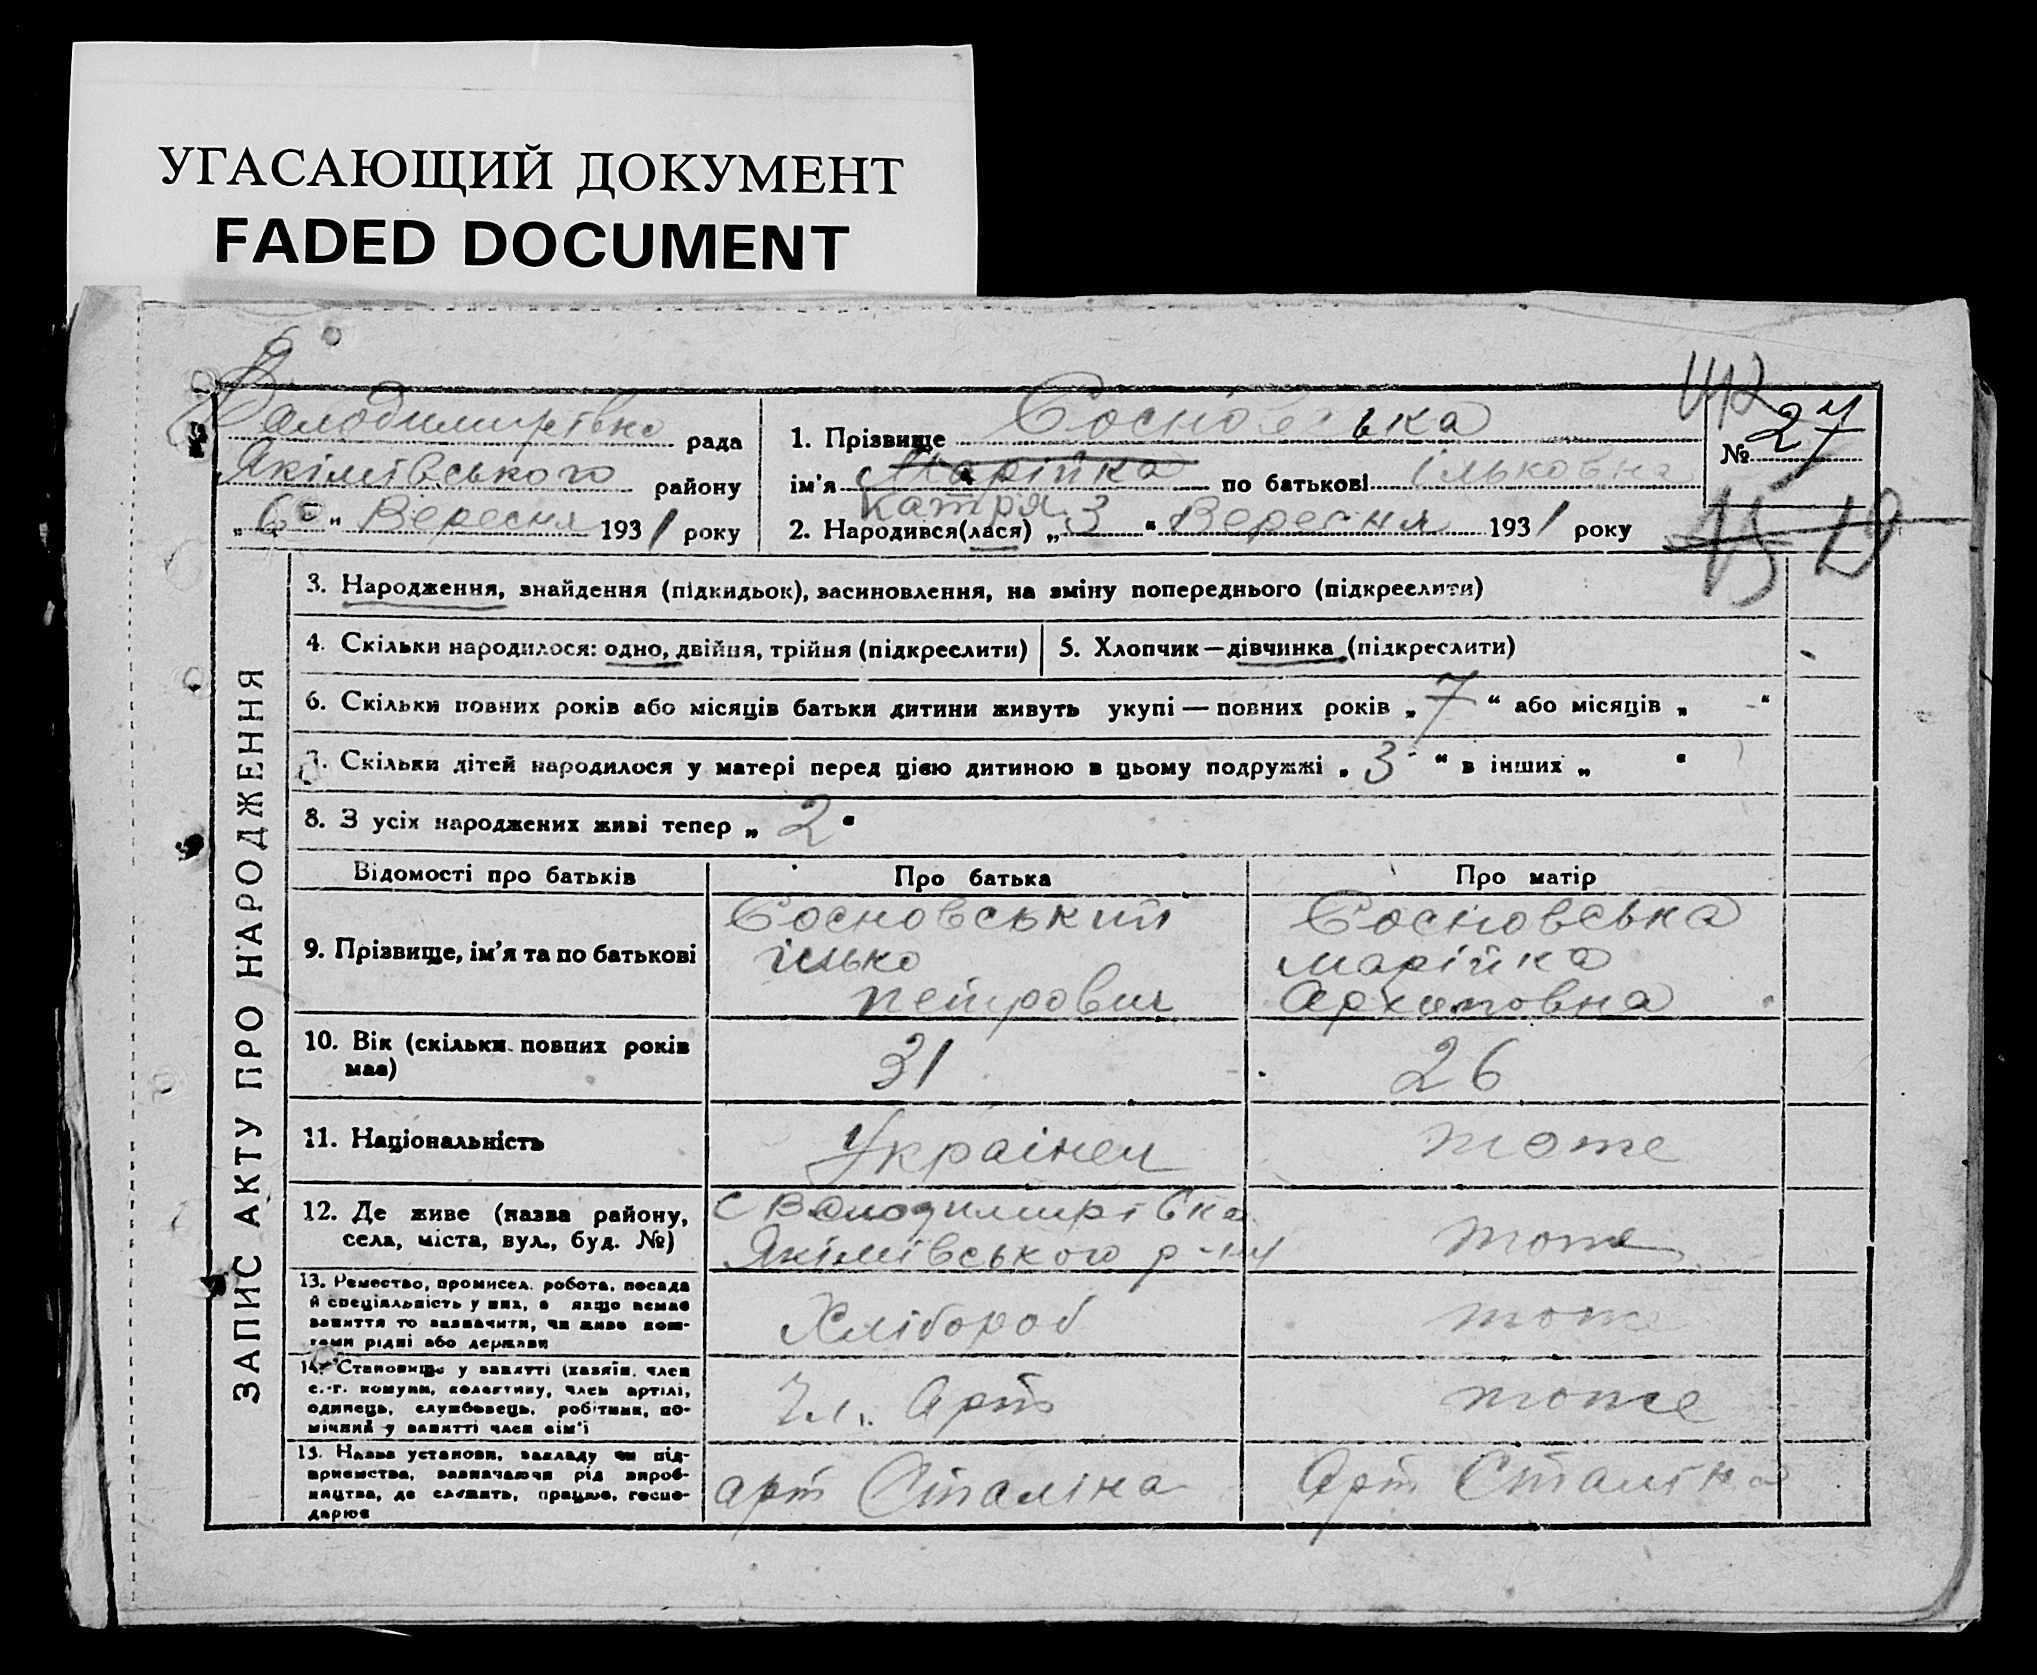 УГАСАЮЩИЙ ДОКУМЕНТ
FADED DOCUMENT
Володимирівка рада
Якімівського району
„6“ Вересня 1931 року
1. Прізвище Сосновська
ім'я Марійка по батькові Ільковна
Катря
2. Народився(лася) „3“ Вересня 1931 року
№ 27
15 19
ЗАПИС АКТУ ПРО НАРОДЖЕННЯ
3. Народження, знайдення (підкидьок), засиновлення, на зміну попереднього (підкреслити)
4. Скільки народилося: одно, двійня, трійня (підкреслити)
5. Хлопчик—дівчинка (підкреслити)
6. Скільки повних років або місяців батьки дитини живуть укупі — повних років „7“ або місяців „ - “
7. Скільки дітей народилося у матері перед цією дитиною в цьому подружжі „3“ в інших „ “
8. З усіх народжених живі тепер „2“
Відомості про батьків
Про батька
Про матір
9. Прізвище, ім'я та по батькові
Сосновський
Ілько
Петрович
Сосновська
Марійка
Архиповна
10. Вік (скільки повних років
має)
31
26
11. Національність
Українец
тоже
12. Де живе (назва району,
села, міста, вул., буд. №)
с Володимирівка
Якімівського р-ну
тоже
13. Ремество, промисел. робота, посада
й спеціяльність у них, а якщо немає
заняття то зазначити, чи живе кош-
тами рідні або держави
Хлібороб
тоже
14. Становище у занятті (хазяїн, член
с.-г. комуни, колективу, член артілі,
одинець, службовець, робітник, по-
мічний у занятті член сім'ї
Чл. Арт
тоже
15. Назва установи, закладу чи під-
приємства, зазначаючи рід вироб-
ництва, де служить, працює, госпо-
дарює
арт Сталіна
Арт Сталіна